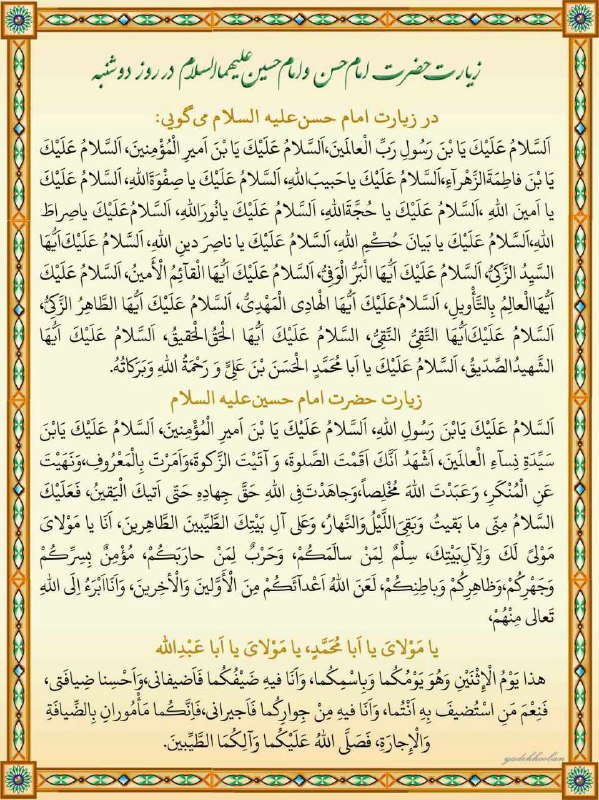 زیارت حضرت امام حسن و امام حسین علیهماالسلام در روز دوشنبه
در زیارت امام حسن علیه السلام می‌گویی:
اَلسَّلامُ عَلَيْكَ يَا بْنَ رَسُولِ رَبِّ الْعالَمينَ،اَلسَّلامُ عَلَيْكَ يَا بْنَ اَميرِ الْمُؤْمِنينَ، اَلسَّلامُ عَلَيْكَ
يَا بْنَ فاطِمَةَالزَّهْرآءِ،اَلسَّلامُ عَلَيْكَ ياحَبيبَ‌اللهِ، اَلسَّلامُ عَلَيْكَ يا صِفْوَةَاللهِ، اَلسَّلامُ عَلَيْكَ
يا اَمينَ اللهِ ،اَلسَّلامُ عَلَيْكَ يا حُجَّةَاللهِ، اَلسَّلامُ عَلَيْكَ يانُورَاللهِ، اَلسَّلامُ‌عَلَيْكَ ياصِراطَ
اللهِ،اَلسَّلامُ عَلَيْكَ يا بَيانَ حُكْمِ اللهِ، اَلسَّلامُ عَلَيْكَ يا ناصِرَ دينِ اللهِ، اَلسَّلامُ عَلَيْكَ‌اَيُّهَا
السَّيِّدُ الزَّكِيُّ، اَلسَّلامُ عَلَيْكَ اَيُّهَا الْبَرُّ الْوَفِيُّ، اَلسَّلامُ عَلَيْكَ اَيُّهَا الْقآئِمُ الْأَمينُ، اَلسَّلامُ عَلَيْكَ
اَيُّهَاالْعالِمُ بِالتَّأْويلِ، اَلسَّلامُ‌عَلَيْكَ اَيُّهَا الْهادِي الْمَهْدِيُّ، اَلسَّلامُ عَلَيْكَ اَيُّهَا الطّاهِرُ الزَّكِيُّ،
اَلسَّلامُ عَلَيْكَ‌اَيُّهَا التَّقِيُّ النَّقِيُّ، السَّلامُ عَلَيْكَ اَيُّهَا الْحَقُّ‌الْحَقيقُ، اَلسَّلامُ عَلَيْكَ اَيُّهَا
الشَّهيدُالصِّدّيقُ، اَلسَّلامُ عَلَيْكَ يا اَبا مُحَمَّدٍ الْحَسَنَ بْنَ عَلِيٍّ وَ رَحْمَةُ اللهِ وَبَرَكاتُهُ.
زیارت حضرت امام حسین علیه السلام
اَلسَّلامُ عَلَيْكَ يَابْنَ رَسُولِ اللهِ، اَلسَّلامُ عَلَيْكَ يَا بْنَ اَميرِ الْمُؤْمِنينَ، اَلسَّلامُ عَلَيْكَ يَابْنَ
سَيِّدَةِ نِسآءِ الْعالَمينَ، اَشْهَدُ اَنَّكَ اَقَمْتَ الصَّلوةَ، وَ آتَيْتَ الزَّكوةَ،وَاَمَرْتَ بِالْمَعْرُوفِ،وَنَهَيْتَ
عَنِ الْمُنْكَرِ، وَعَبَدْتَ اللهَ مُخْلِصاً،وَجاهَدْتَ‌فِي اللهِ حَقَّ جِهادِهِ حَتّى اَتيكَ الْيَقينُ، فَعَلَيْكَ
السَّلامُ مِنّي ما بَقيتُ وَبَقِيَ‌اللَّيْلُ‌وَالنَّهارُ، وَعَلى آلِ بَيْتِكَ الطَّيِّبينَ الطّاهِرينَ، اَنَا يا مَوْلايَ
مَوْلىً لَكَ وَلِآلِ‌بَيْتِكَ، سِلْمٌ لِمَنْ سالَمَكُمْ، وَحَرْبٌ لِمَنْ حارَبَكُمْ، مُؤْمِنٌ بِسِرِّكُمْ
وَجَهْرِكُمْ،وَظاهِرِكُمْ وَباطِنِكُمْ، لَعَنَ اللهُ اَعْدآئَكُمْ مِنَ الْأَوَّلينَ وَالْأخِرينَ، وَاَنَااَبْرَءُ اِلَى اللهِ
تَعالى مِنْهُمْ،
يا مَوْلايَ يا اَبا مُحَمَّدٍ، يا مَوْلايَ يا اَبا عَبْدِالله
هذا يَوْمُ الْإِثْنَيْنِ وَهُوَ يَوْمُكُما وَبِاسْمِكُما، وَاَنَا فيهِ ضَيْفُكُما فَاَضيفاني،وَاَحْسِنا ضِيافَتي،
فَنِعْمَ مَنِ اسْتُضيفَ بِهِ اَنْتُما، وَاَنَا فيهِ مِنْ جِوارِكُما فَاَجيراني،فَاِنَّكُما مَأْمُورانِ بِالضِّيافَةِ
وَالْإِجارَةِ، فَصَلَّى اللهُ عَلَيْكُما وَآلِكُمَا الطَّيِّبينَ.
yadekhooban